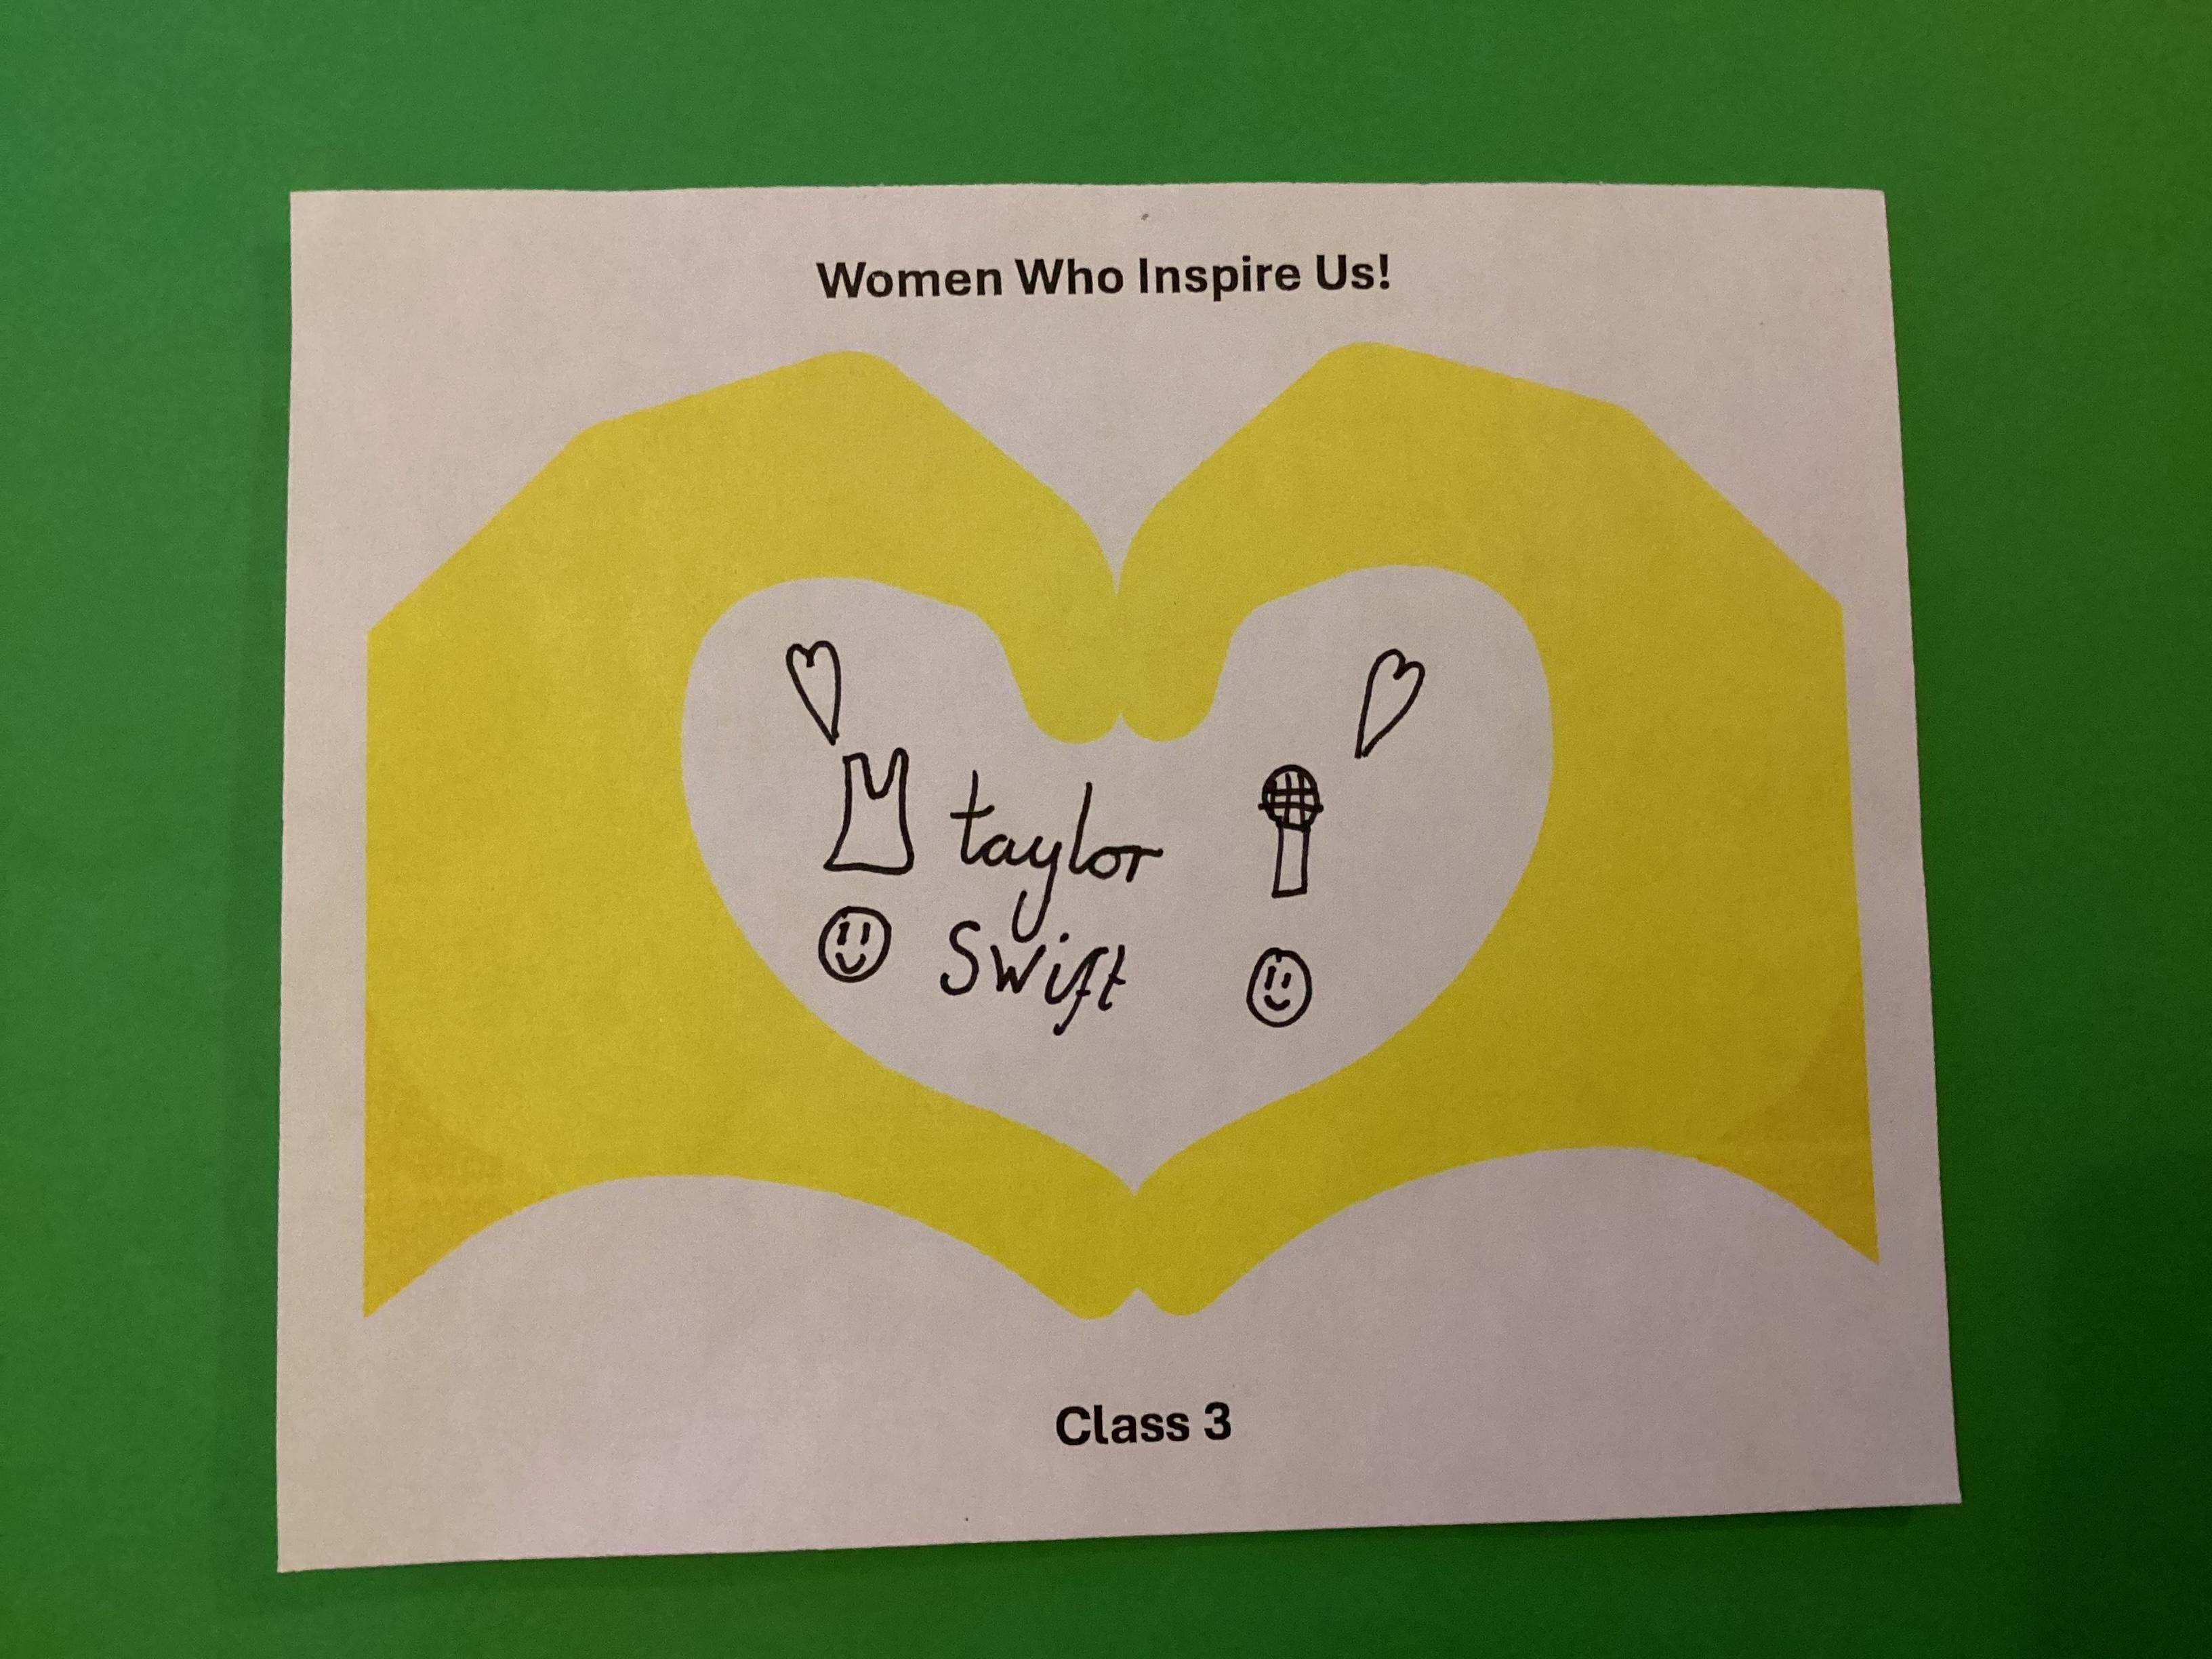 Women Who Inspire Us!
taylor
Swift
Class 3